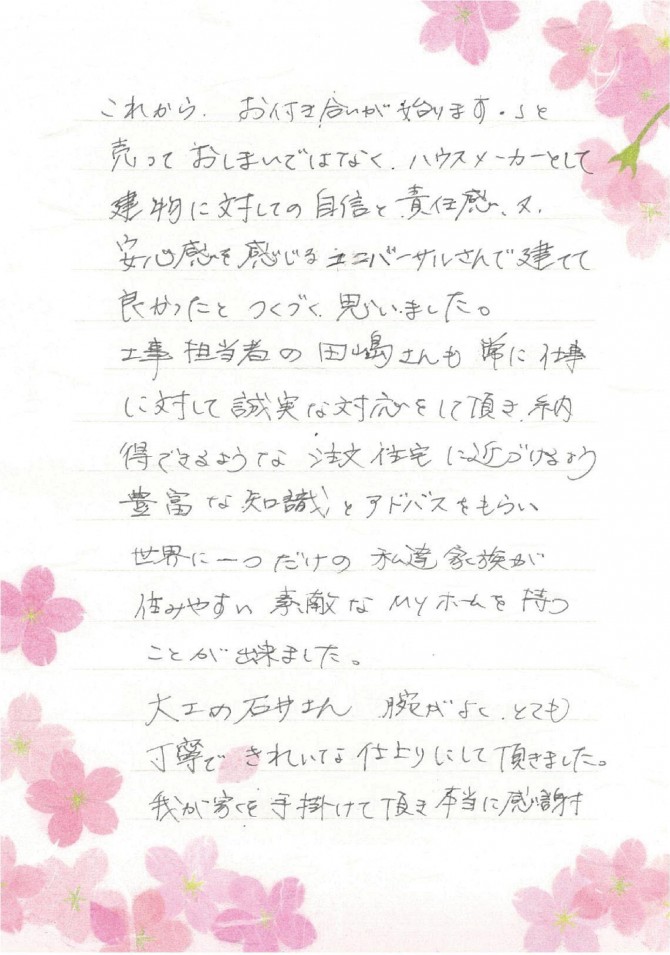 これから、お付き合いが始ります。」と
売っておしまいではなく、ハウスメーカーとして
建物に対しての自信と責任感、又、
安心感を感じるユニバーサルさんで建てて
良かったとつくづく思いました。
工事担当者の田嶋さんも常に仕事
に対して誠実な対応をして頂き、納
得できるような注文住宅に近づけるよう
豊富な知識とアドバスをもらい
世界に一つだけの私達家族が
住みやすい素敵なMyホームを持つ
ことが出来ました。
大工の石井さん 腕がよく、とても
丁寧できれいな仕上りにして頂きました。
我が家を手掛けて頂き本当に感謝